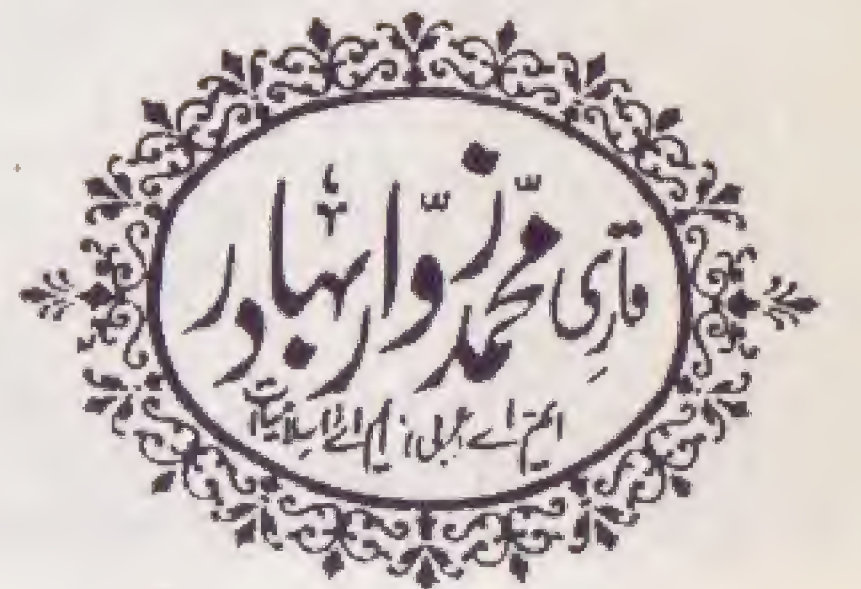 قاری محمد زوّار بہادر
ایم اے عربی، ایم اے اسلامیات